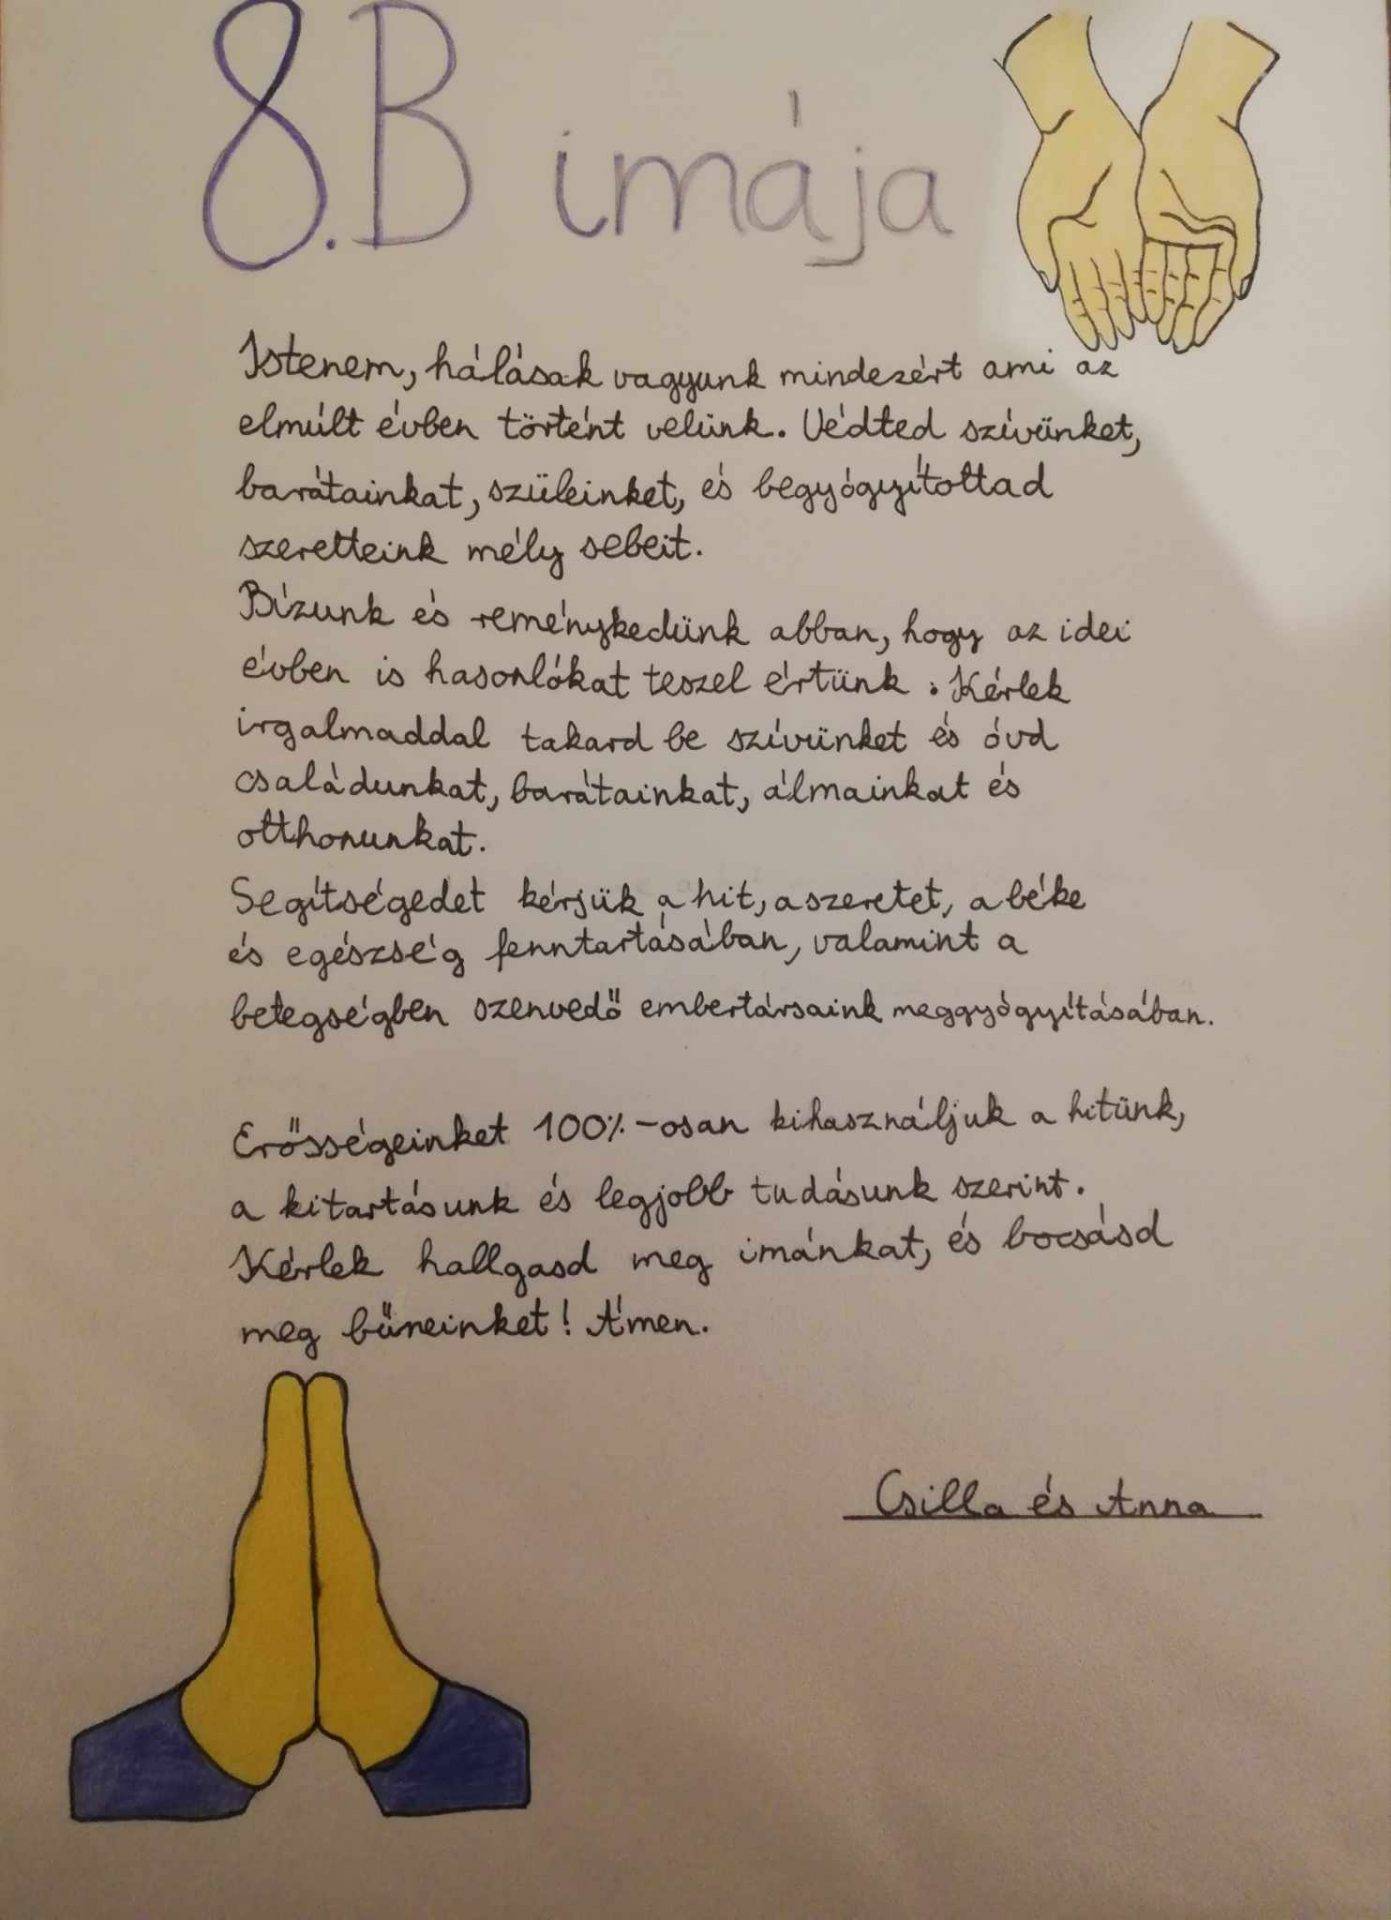 8.B imája
Istenem, hálásak vagyunk mindezért ami az
elmúlt évben történt velünk. Védted szívünket,
barátainkat, szüleinket, és begyógyítottad
szeretteink mély sebeit.
Bízunk és reménykedünk abban, hogy az idei
évben is hasonlókat teszel értünk. Kérlek
irgalmaddal takard be szívünket és óvd
családunkat, barátainkat, álmainkat és
otthonunkat.
Segítségedet kérjük a hit, a szeretet, a béke
és egészség fenntartásában, valamint a
betegségben szenvedő embertársaink meggyógyításában.
Erősségeinket 100%-osan kihasználjuk a hitünk,
a kitartásunk és legjobb tudásunk szerint.
Kérlek hallgasd meg imánkat, és bocsásd
meg bűneinket! Ámen.
Csilla és Anna